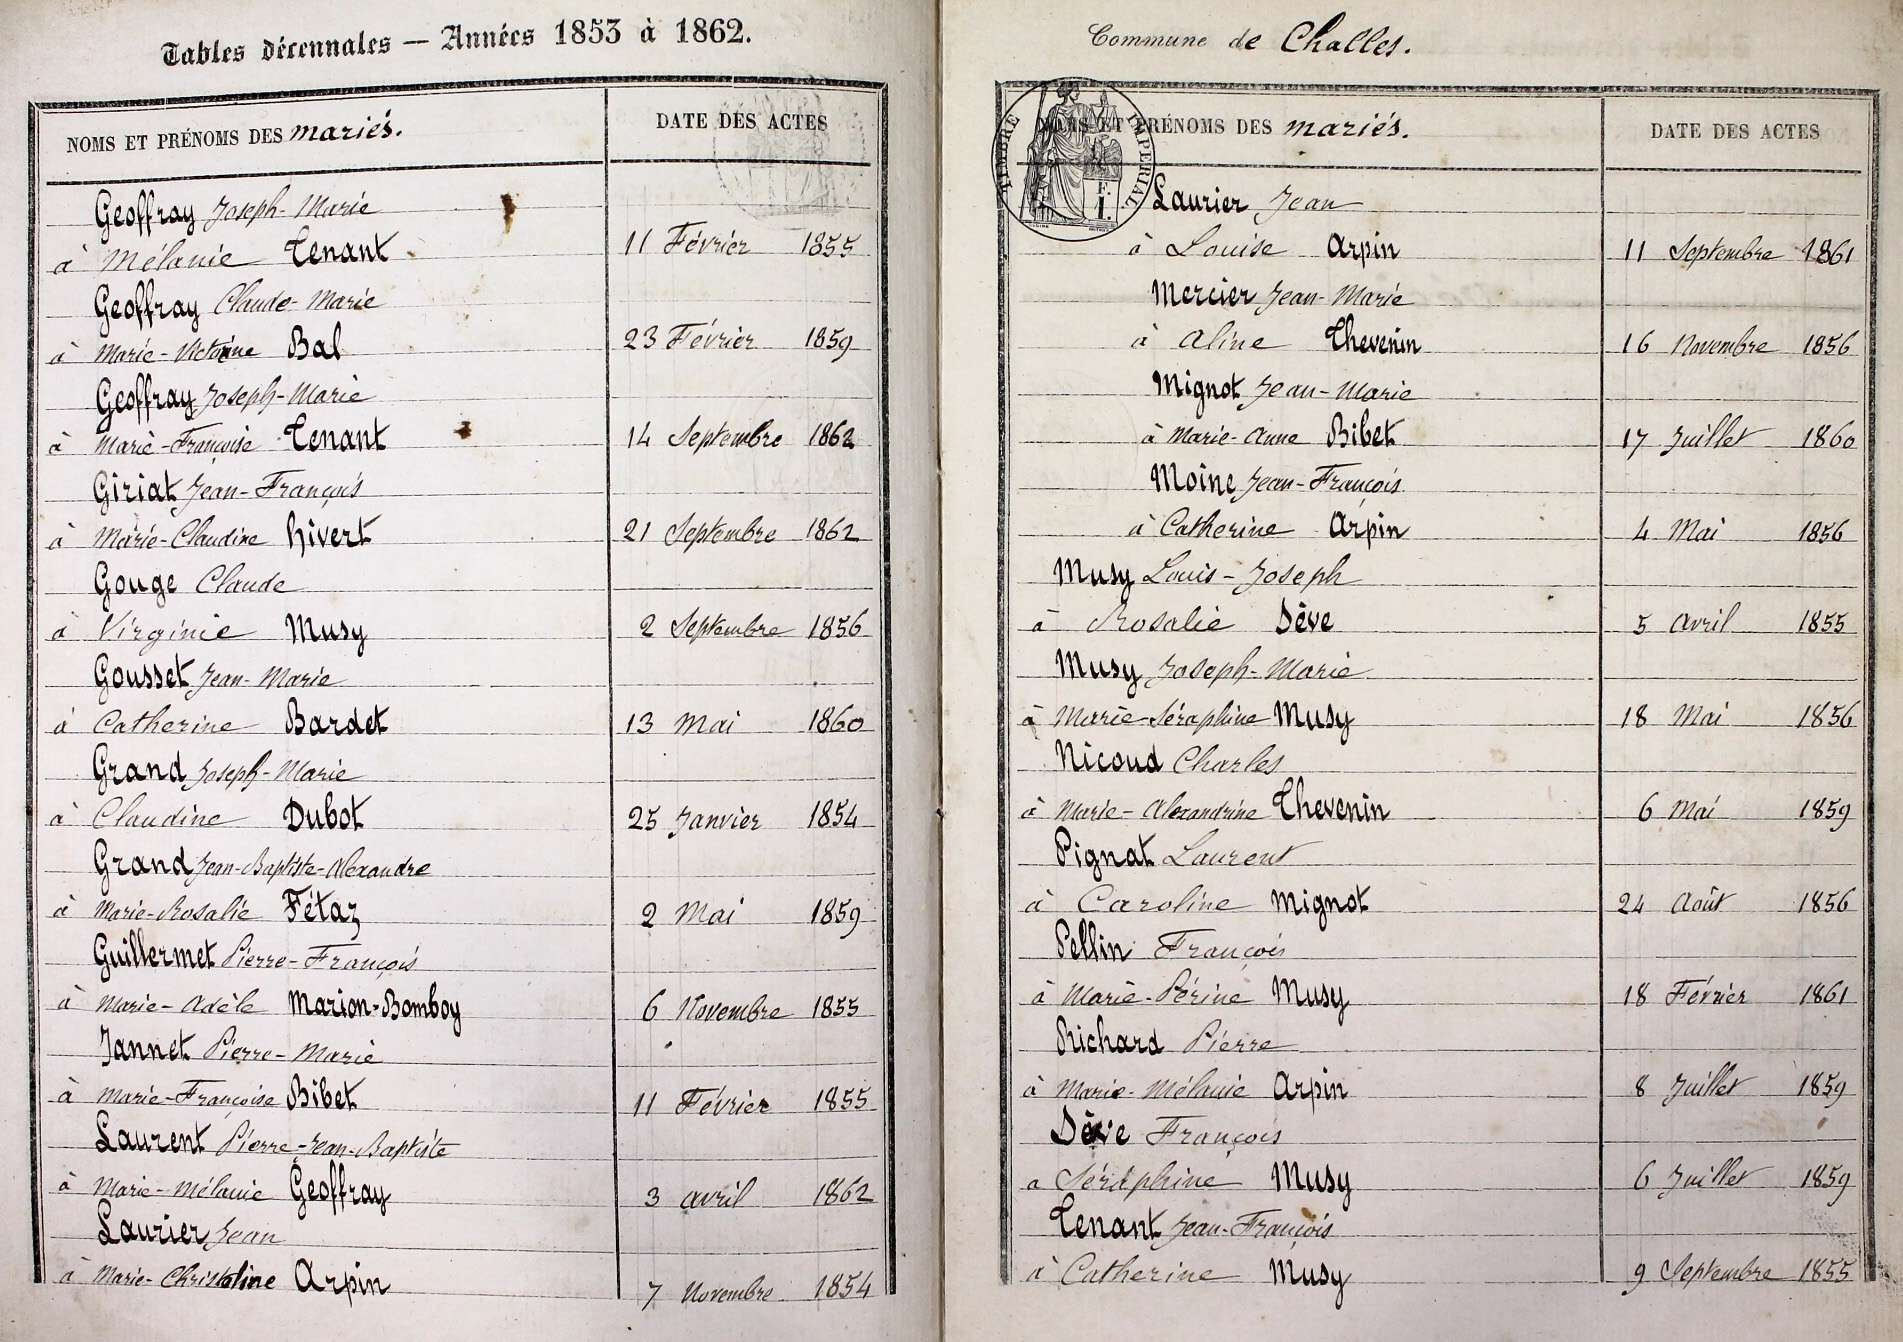 Tables décennales — Années 1853 à 1862.
NOMS ET PRÉNOMS DES mariés. DATE DES ACTES
Geoffray Joseph-Marie
à Mélanie Tenant 11 Février 1855
Geoffray Claude-Marie
à Marie-Victorine Bal 23 Février 1859
Geoffray Joseph-Marie
à Marie-Françoise Tenant 14 Septembre 1862
Giriat Jean-François
à Marie-Claudine hivert 21 Septembre 1862
Gouge Claude
à Virginie Musy 2 Septembre 1856
Gousset Jean-Marie
à Catherine Bardet 13 Mai 1860
Grand Joseph-Marie
à Claudine Dubot 25 Janvier 1854
Grand Jean-Baptiste-Alexandre
à Marie-Rosalie Fétaz 2 Mai 1859
Guillermet Pierre-François
à Marie-Adèle Marion-Bomboy 6 Novembre 1855
Jannet Pierre-Marie
à Marie-Françoise Bibet 11 Février 1855
Laurent Pierre-Jean-Baptiste
à Marie-Mélanie Geoffray 3 avril 1862
Laurier Jean
à Marie-Christoline Arpin 7 Novembre 1854
Commune de Challes.
NOMS ET PRÉNOMS DES mariés. DATE DES ACTES
TIMBRE IMPERIAL
F.
1.
Laurier Jean
à Louise Arpin 11 Septembre 1861
Mercier Jean-Marie
à Aline Thevenin 16 Novembre 1856
Mignot Jean-Marie
à Marie-Anne Bibet 17 Juillet 1860
Moine Jean-François
à Catherine Arpin 4 Mai 1856
Musy Louis-Joseph
à Rosalie Sève 5 avril 1855
Musy Joseph-Marie
à Marie-Séraphine Musy 18 Mai 1856
Nicoud Charles
à Marie-Alexandrine Thevenin 6 Mai 1859
Pignat Laurent
à Caroline Mignot 24 Août 1856
Pellin François
à Marie-Périne Musy 18 Février 1861
Richard Pierre
à Marie-Mélanie Arpin 8 Juillet 1859
Sève François
a Séraphine Musy 6 Juillet 1859
Tenant Jean-François
à Catherine Musy 9 Septembre 1855